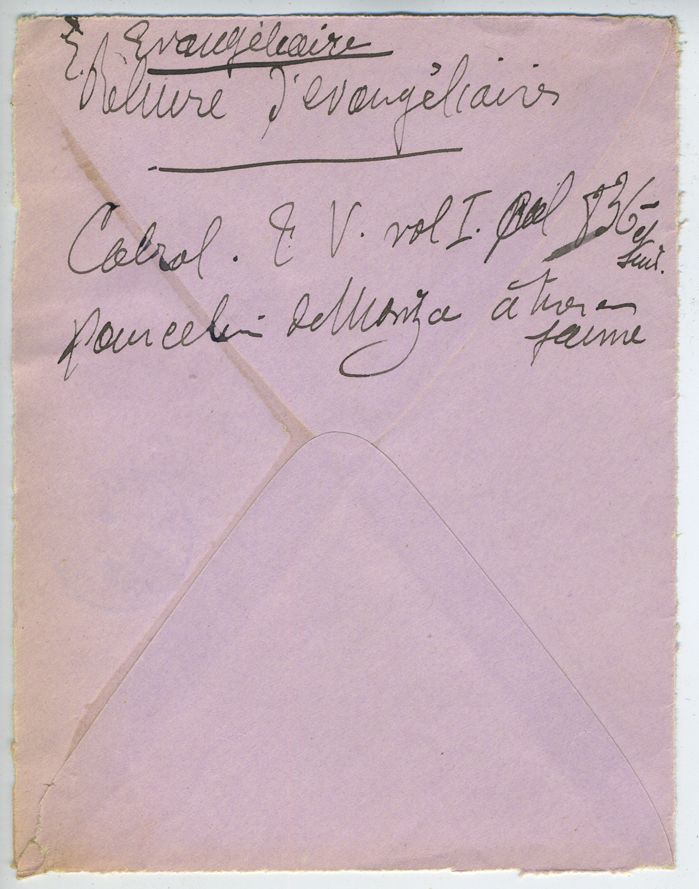 E. Evangéliaire
Reliure d'evangéliaires
Cabrol. T V. vol I. Col 836 et suiv.
pour celui de Monza